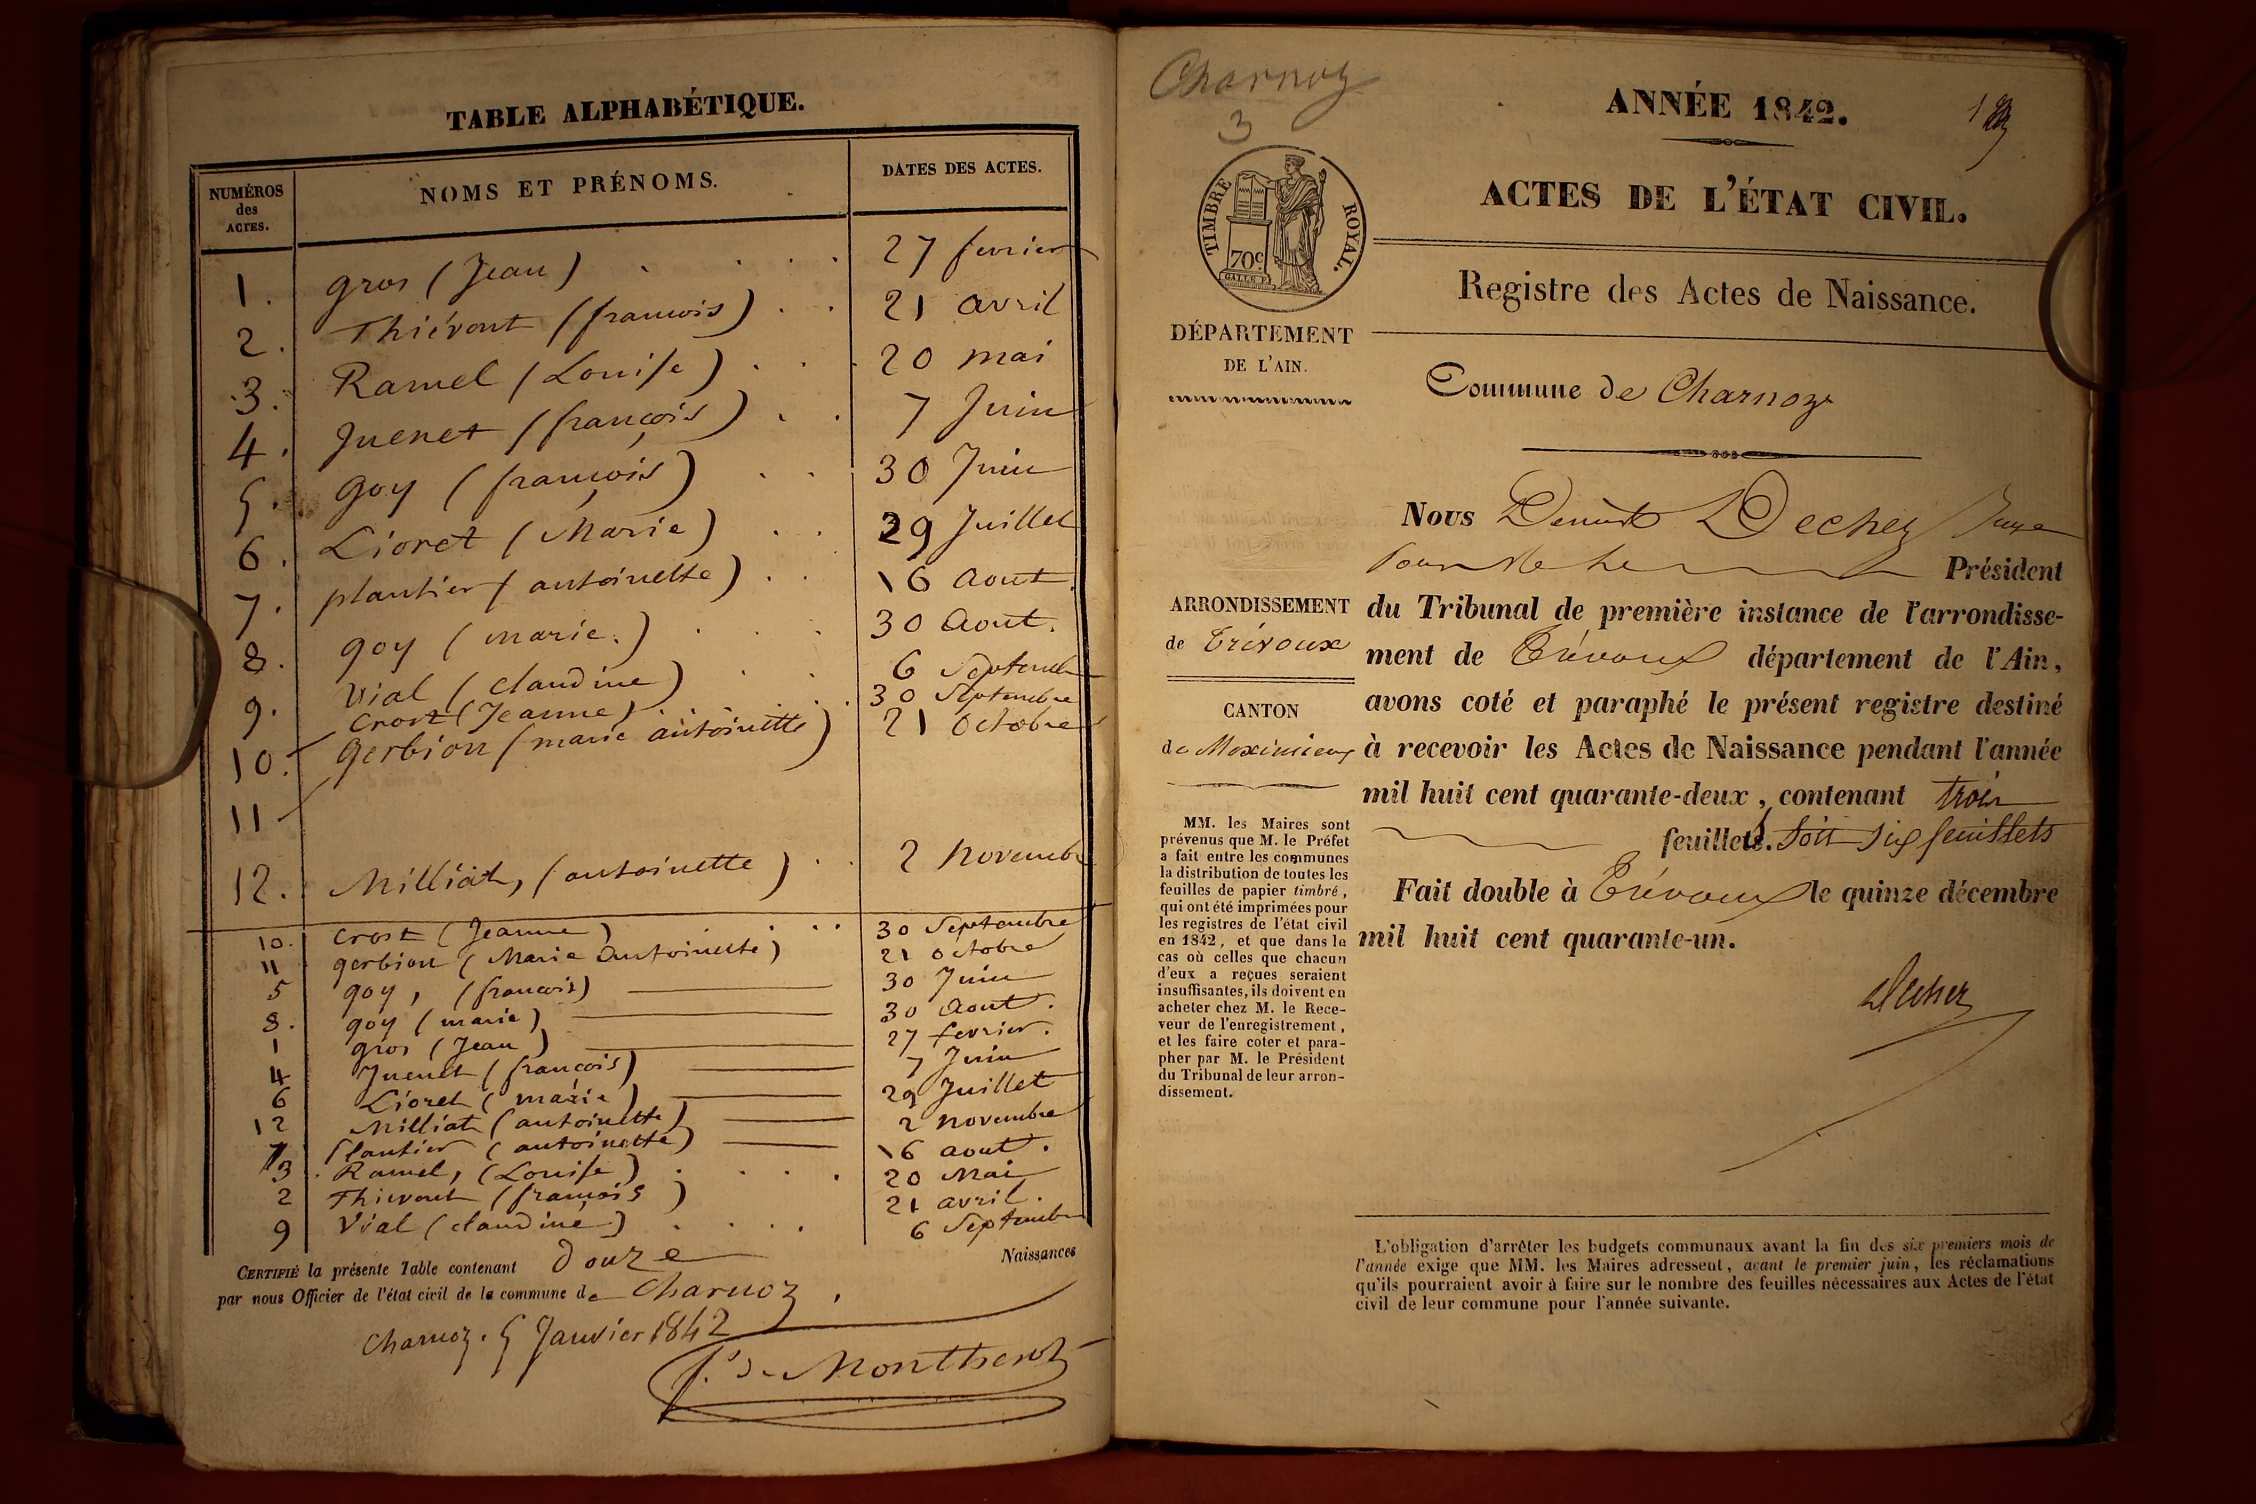 TABLE ALPHABÉTIQUE.
NUMÉROS des ACTES. NOMS ET PRÉNOMS. DATES DES ACTES.
1. gros (Jean) 27 fevrier
2. Thiévont (francois) 21 avril
3. Ramel (Louise) 20 mai
4. Juenet (françois) 7 Juin
5. Goy (françois) 30 Juin
6. Lioret (Marie) 29 Juillet
7. plantier (antoinette) 16 aout
8. goy (marie.) 30 aout.
9. Vial (claudine) 6 Septembre
10. Crost (Jeanne) 30 Septembre
11 Gerbion (marie antoinette) 21 octobre
12. Milliat, (antoinette) 2 novembre
10. Crost (Jeanne) 30 Septembre
11 gerbion (Marie antoinette) 21 octobre
5 goy, (françois) 30 Juin
8. goy (marie) 30 aout.
1 gros (Jean) 27 fevrier.
4 Juenet (françois) 7 Juin
6 Lioret (marie) 29 Juillet
12 Milliat (antoinette) 2 novembre
7 Plantier (antoinette) 16 aout.
3 Ramel, (Louise) 20 Mai
2 Thievont (françois) 21 avril.
9 Vial (claudine) 6 Septembre
CERTIFIÉ la présente Table contenant douze Naissances
par nous Officier de l'état civil de la commune de Charnoz,
Charnoz. 5 Janvier 1842
f. de Montherot
Charnoz
3
ANNÉE 1842.
TIMBRE ROYAL.
70c
ACTES DE L'ÉTAT CIVIL.
Registre des Actes de Naissance.
DÉPARTEMENT
DE L'AIN.
Commune de Charnoz
ARRONDISSEMENT
de Trévoux
CANTON
de Meximieux
MM. les Maires sont
prévenus que M. le Préfet
a fait entre les communes
la distribution de toutes les
feuilles de papier timbré,
qui ont été imprimées pour
les registres de l'état civil
en 1842, et que dans le
cas où celles que chacun
d'eux a reçues seraient
insuffisantes, ils doivent en
acheter chez M. le Rece-
veur de l'enregistrement,
et les faire coter et para-
pher par M. le Président
du Tribunal de leur arron-
dissement.
Nous Benoit Dechez Juge
pour le Président
du Tribunal de première instance de l'arrondisse-
ment de Trévoux département de l'Ain,
avons coté et paraphé le présent registre destiné
à recevoir les Actes de Naissance pendant l'année
mil huit cent quarante-deux, contenant trois
feuilles. Soit Six feuillets
Fait double à Trévoux le quinze décembre
mil huit cent quarante-un.
Dechez
L'obligation d'arrêter les budgets communaux avant la fin des six premiers mois de
l'année exige que MM. les Maires adressent, avant le premier juin, les réclamations
qu'ils pourraient avoir à faire sur le nombre des feuilles nécessaires aux Actes de l'état
civil de leur commune pour l'année suivante.